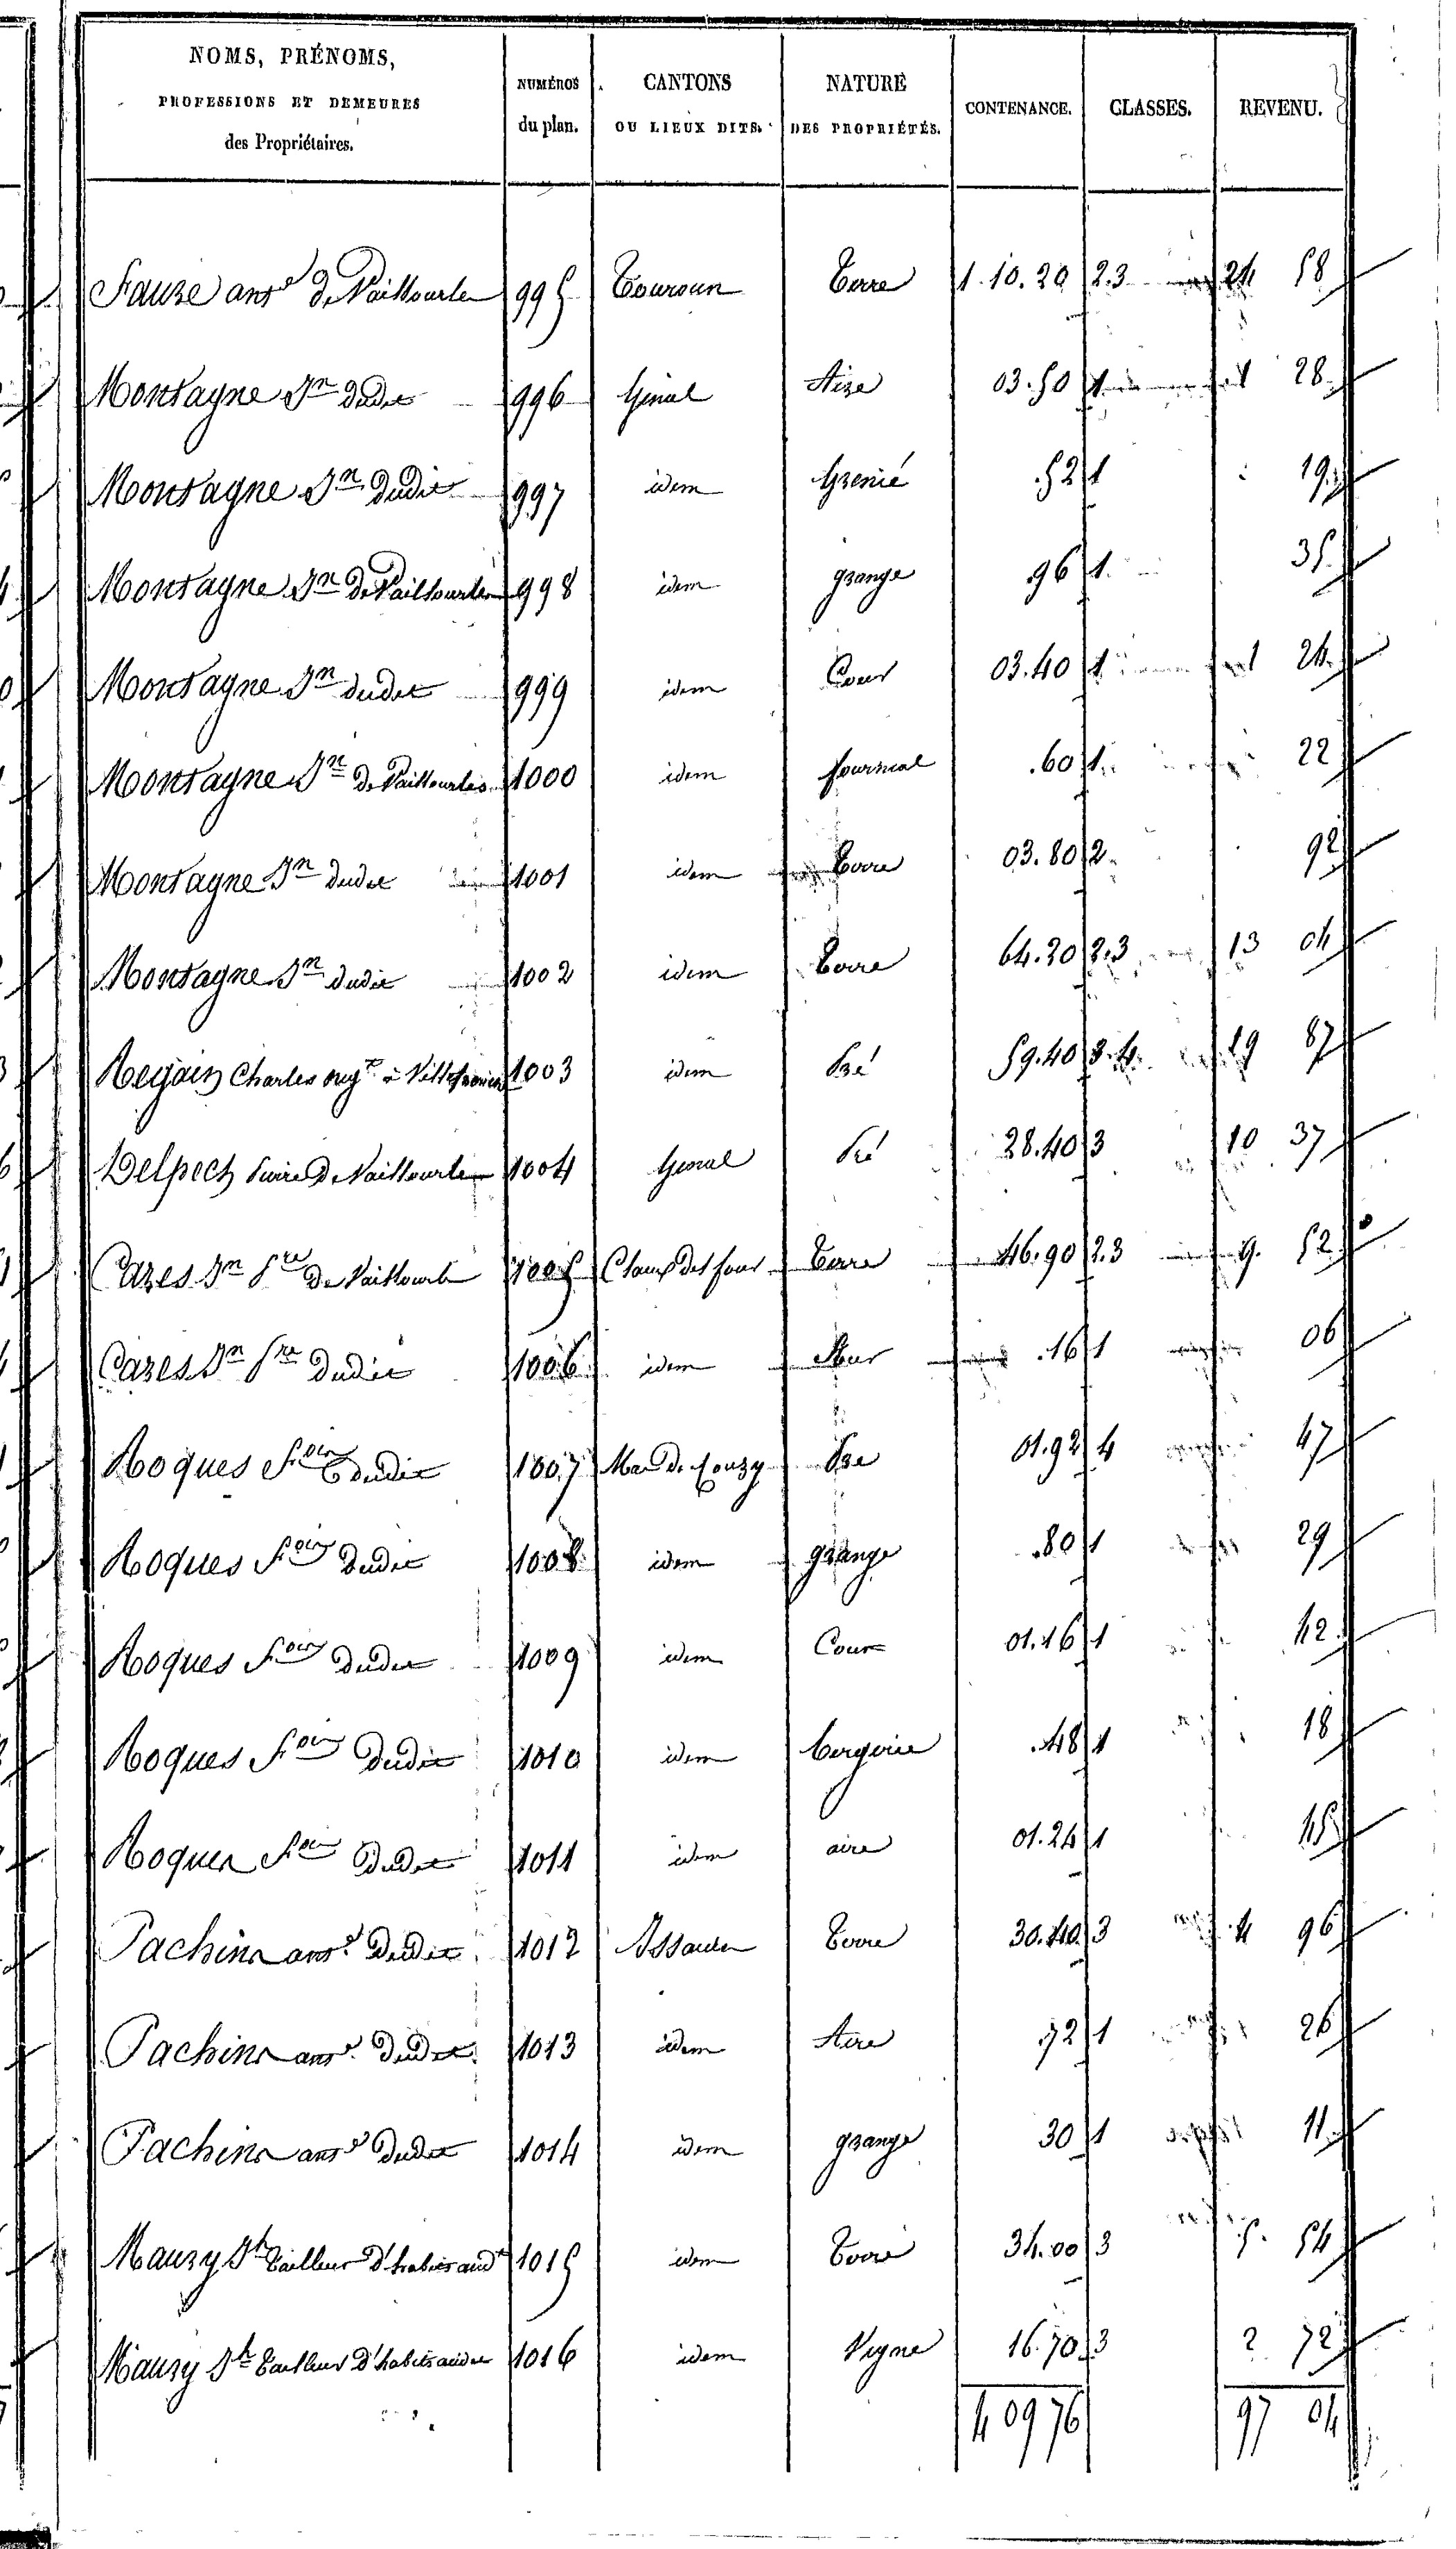 NOMS, PRÉNOMS, PROFESSIONS ET DEMEURES des Propriétaires. NUMÉROS du plan. CANTONS OU LIEUX DITS. NATURE DES PROPRIÉTÉS. CONTENANCE. CLASSES. REVENU.
Fauze 995 Terre 1.10.20 2.3 24 58
Montagne Jn dudit 996 Ginal Aire 03.50 1 1 28
Montagne Jn dudit 997 idem Grenié 52 1 19
Montagne Jn de Vaillourles 998 idem grange 96 1 35
Montagne Jn dudit 999 idem Cour 03.40 1 1 24
Montagne Jn de Vaillourles 1000 idem fournial .60 1 22
Montagne Jn dudit 1001 idem Terre 03.80 2 92
Montagne Jn dudit 1002 idem Terre 64.20 2.3 13 04
Charles à 1003 idem Pré 59.40 3.4 19 87
Delpech Pierre de Vaillourles 1004 Ginal Pré 28.40 3 10 37
Cazes Jn Pre de Vaillourles 1005 Terre 46.90 2.3 9 52
Cazes Jn Pre dudit 1006 idem .16 1 06
Roques dudit 1007 Mas de Couzy Pré 01.92 4 47
Roques dudit 1008 idem grange .80 1 29
Roques dudit 1009 idem Cour 01.16 1 42
Roques dudit 1010 idem bergerie .48 1 18
Roques dudit 1011 idem aire 01.24 1 45
Pachins dudit 1012 Terre 30.40 3 4 96
Pachins dudit 1013 idem Aire 72 1 26
Pachins dudit 1014 idem grange 30 1 11
Mauzy Jh Tailleur d'habits audt 1015 idem Terre 34.00 3 5 54
Mauzy Jh Tailleur d'habits audit 1016 idem Vigne 16.70 3 2 72
4 09 76 97 04